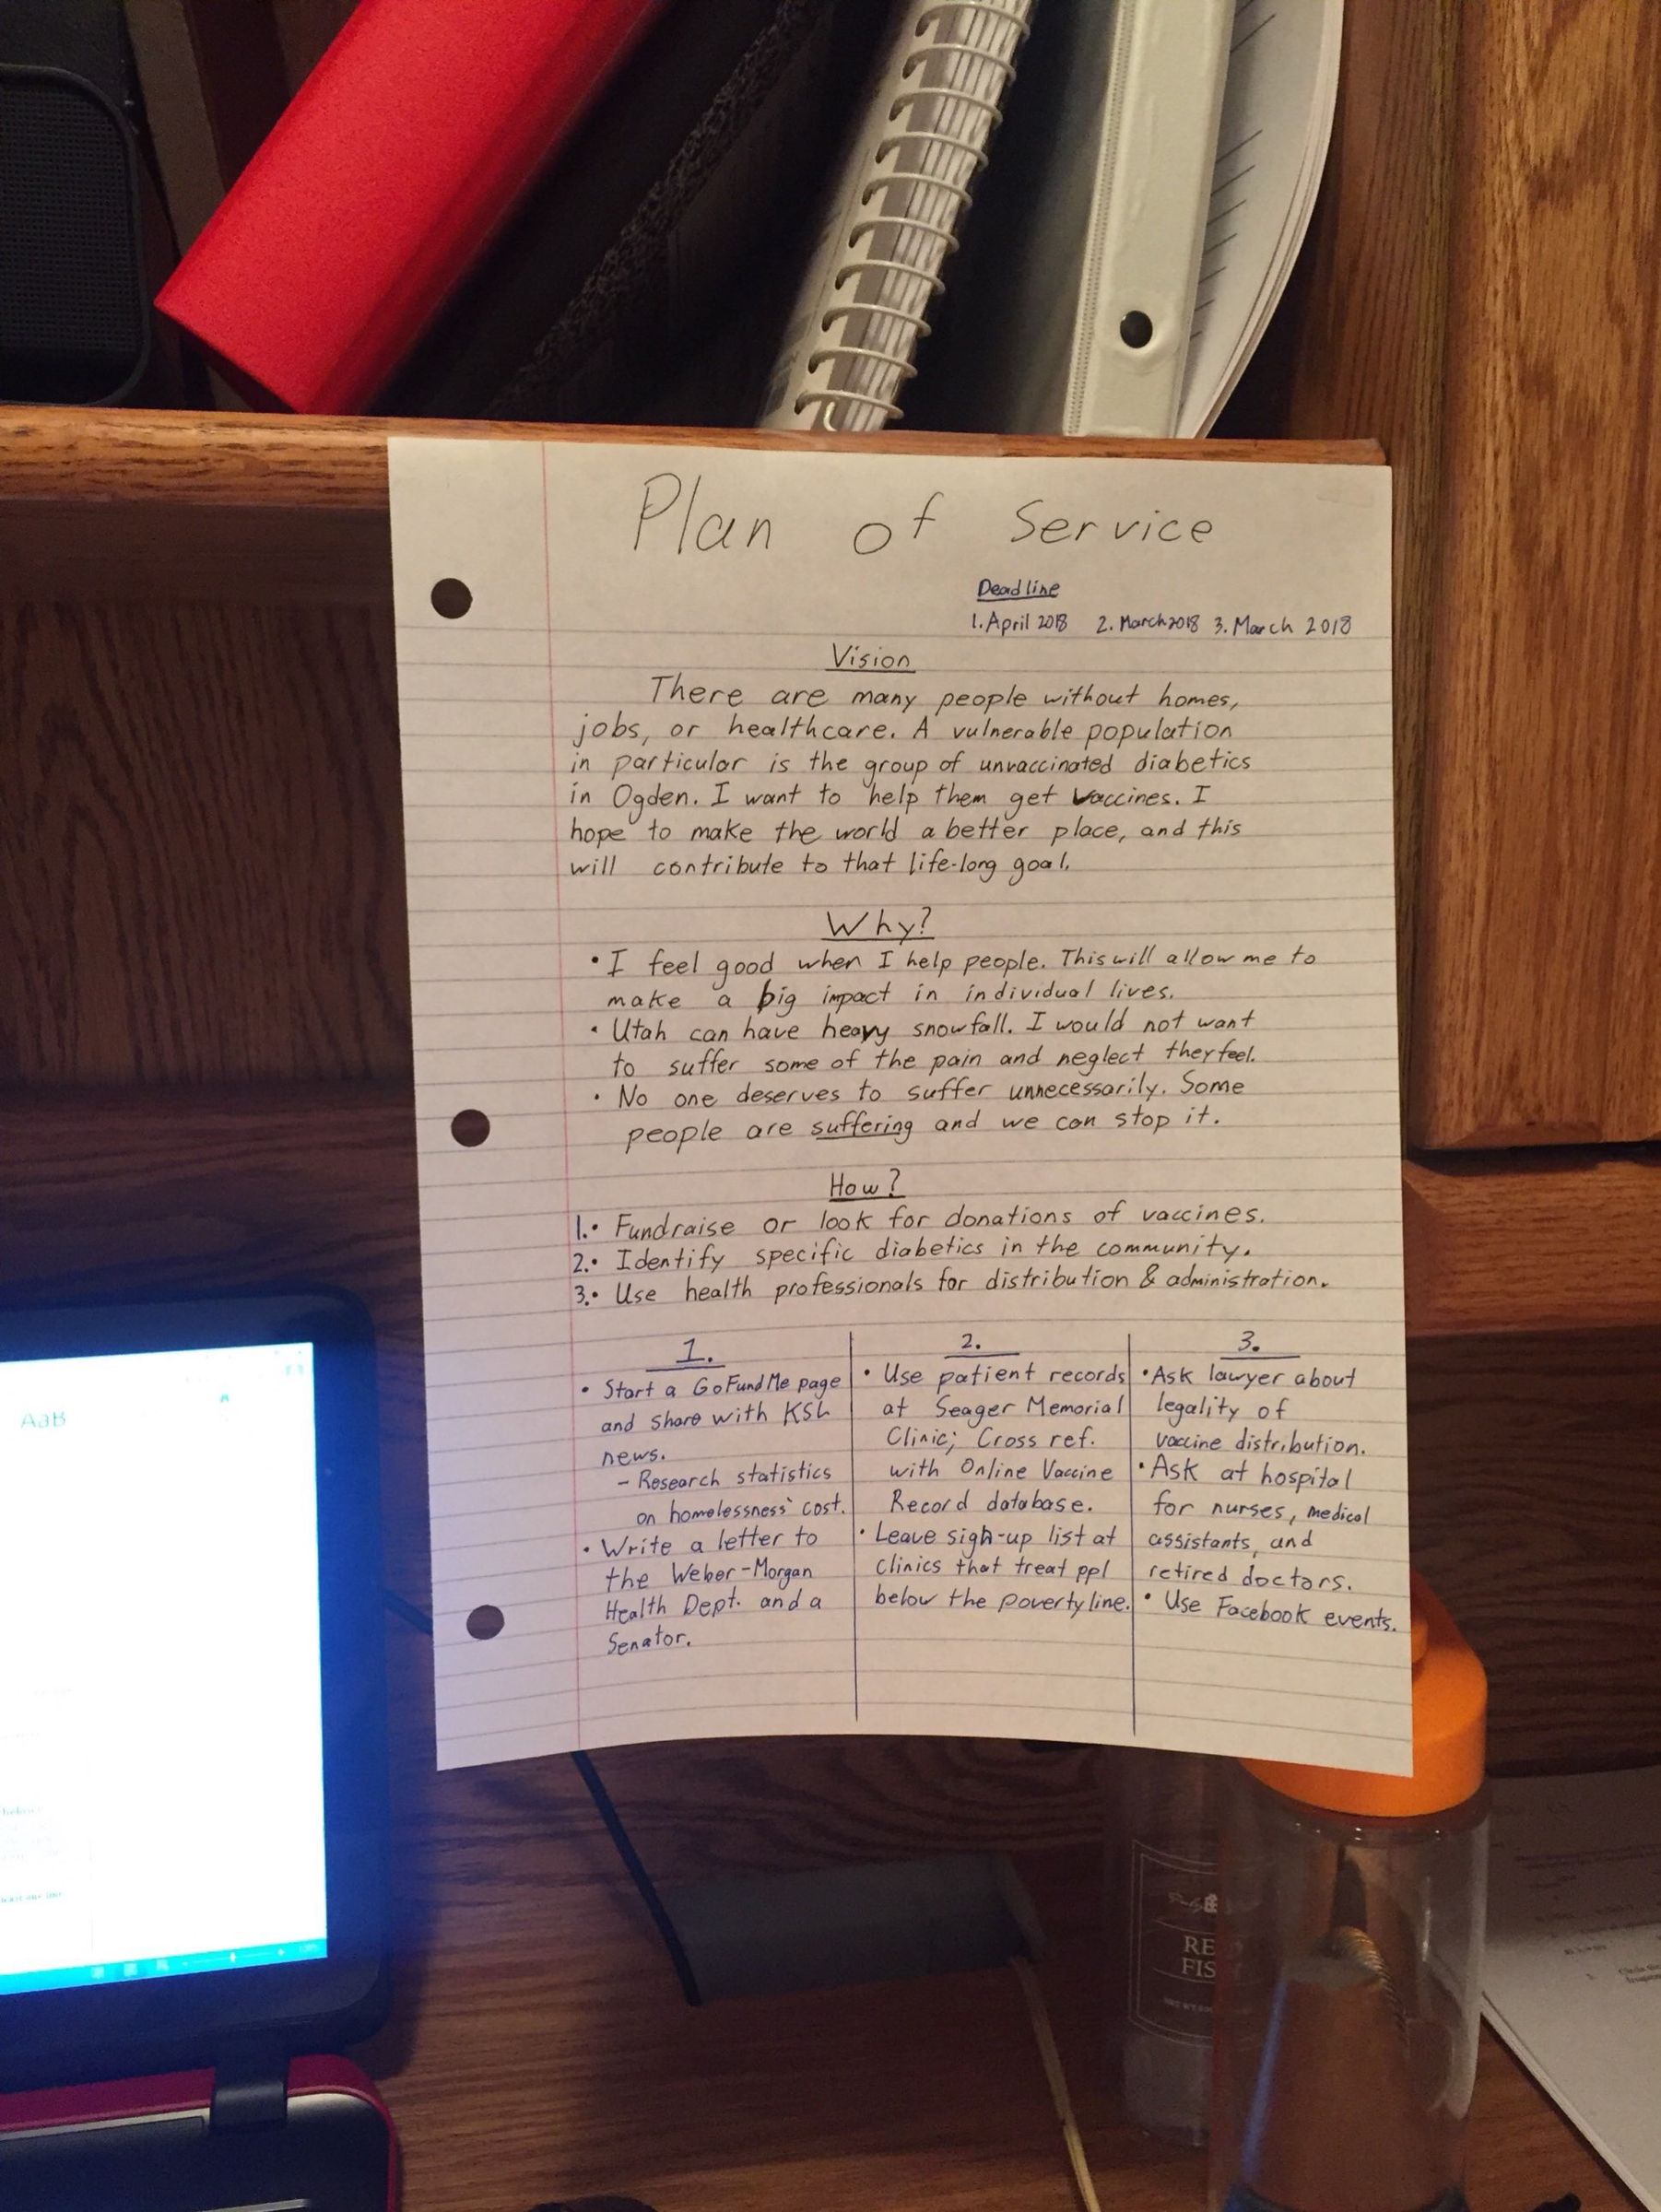 Plan of Service
Deadline
1. April 2018 2. March 2018 3. March 2018
Vision
There are many people without homes,
jobs, or healthcare. A vulnerable population
in particular is the group of unvaccinated diabetics
in Ogden. I want to help them get vaccines. I
hope to make the world a better place, and this
will contribute to that life-long goal.
Why?
• I feel good when I help people. This will allow me to
make a big impact in individual lives.
• Utah can have heavy snowfall. I would not want
to suffer some of the pain and neglect they feel.
• No one deserves to suffer unnecessarily. Some
people are suffering and we can stop it.
How?
1.• Fundraise or look for donations of vaccines.
2.• Identify specific diabetics in the community.
3.• Use health professionals for distribution & administration.
1.
• Start a GoFundMe page
and share with KSL
news.
- Research statistics
on homelessness' cost.
• Write a letter to
the Weber-Morgan
Health Dept. and a
Senator.
2.
• Use patient records
at Seager Memorial
Clinic; Cross ref.
with Online Vaccine
Record database.
• Leave sign-up list at
clinics that treat ppl
below the poverty line.
3.
• Ask lawyer about
legality of
vaccine distribution.
• Ask at hospital
for nurses, medical
assistants, and
retired doctors.
• Use Facebook events.
AaB
RE
FIS